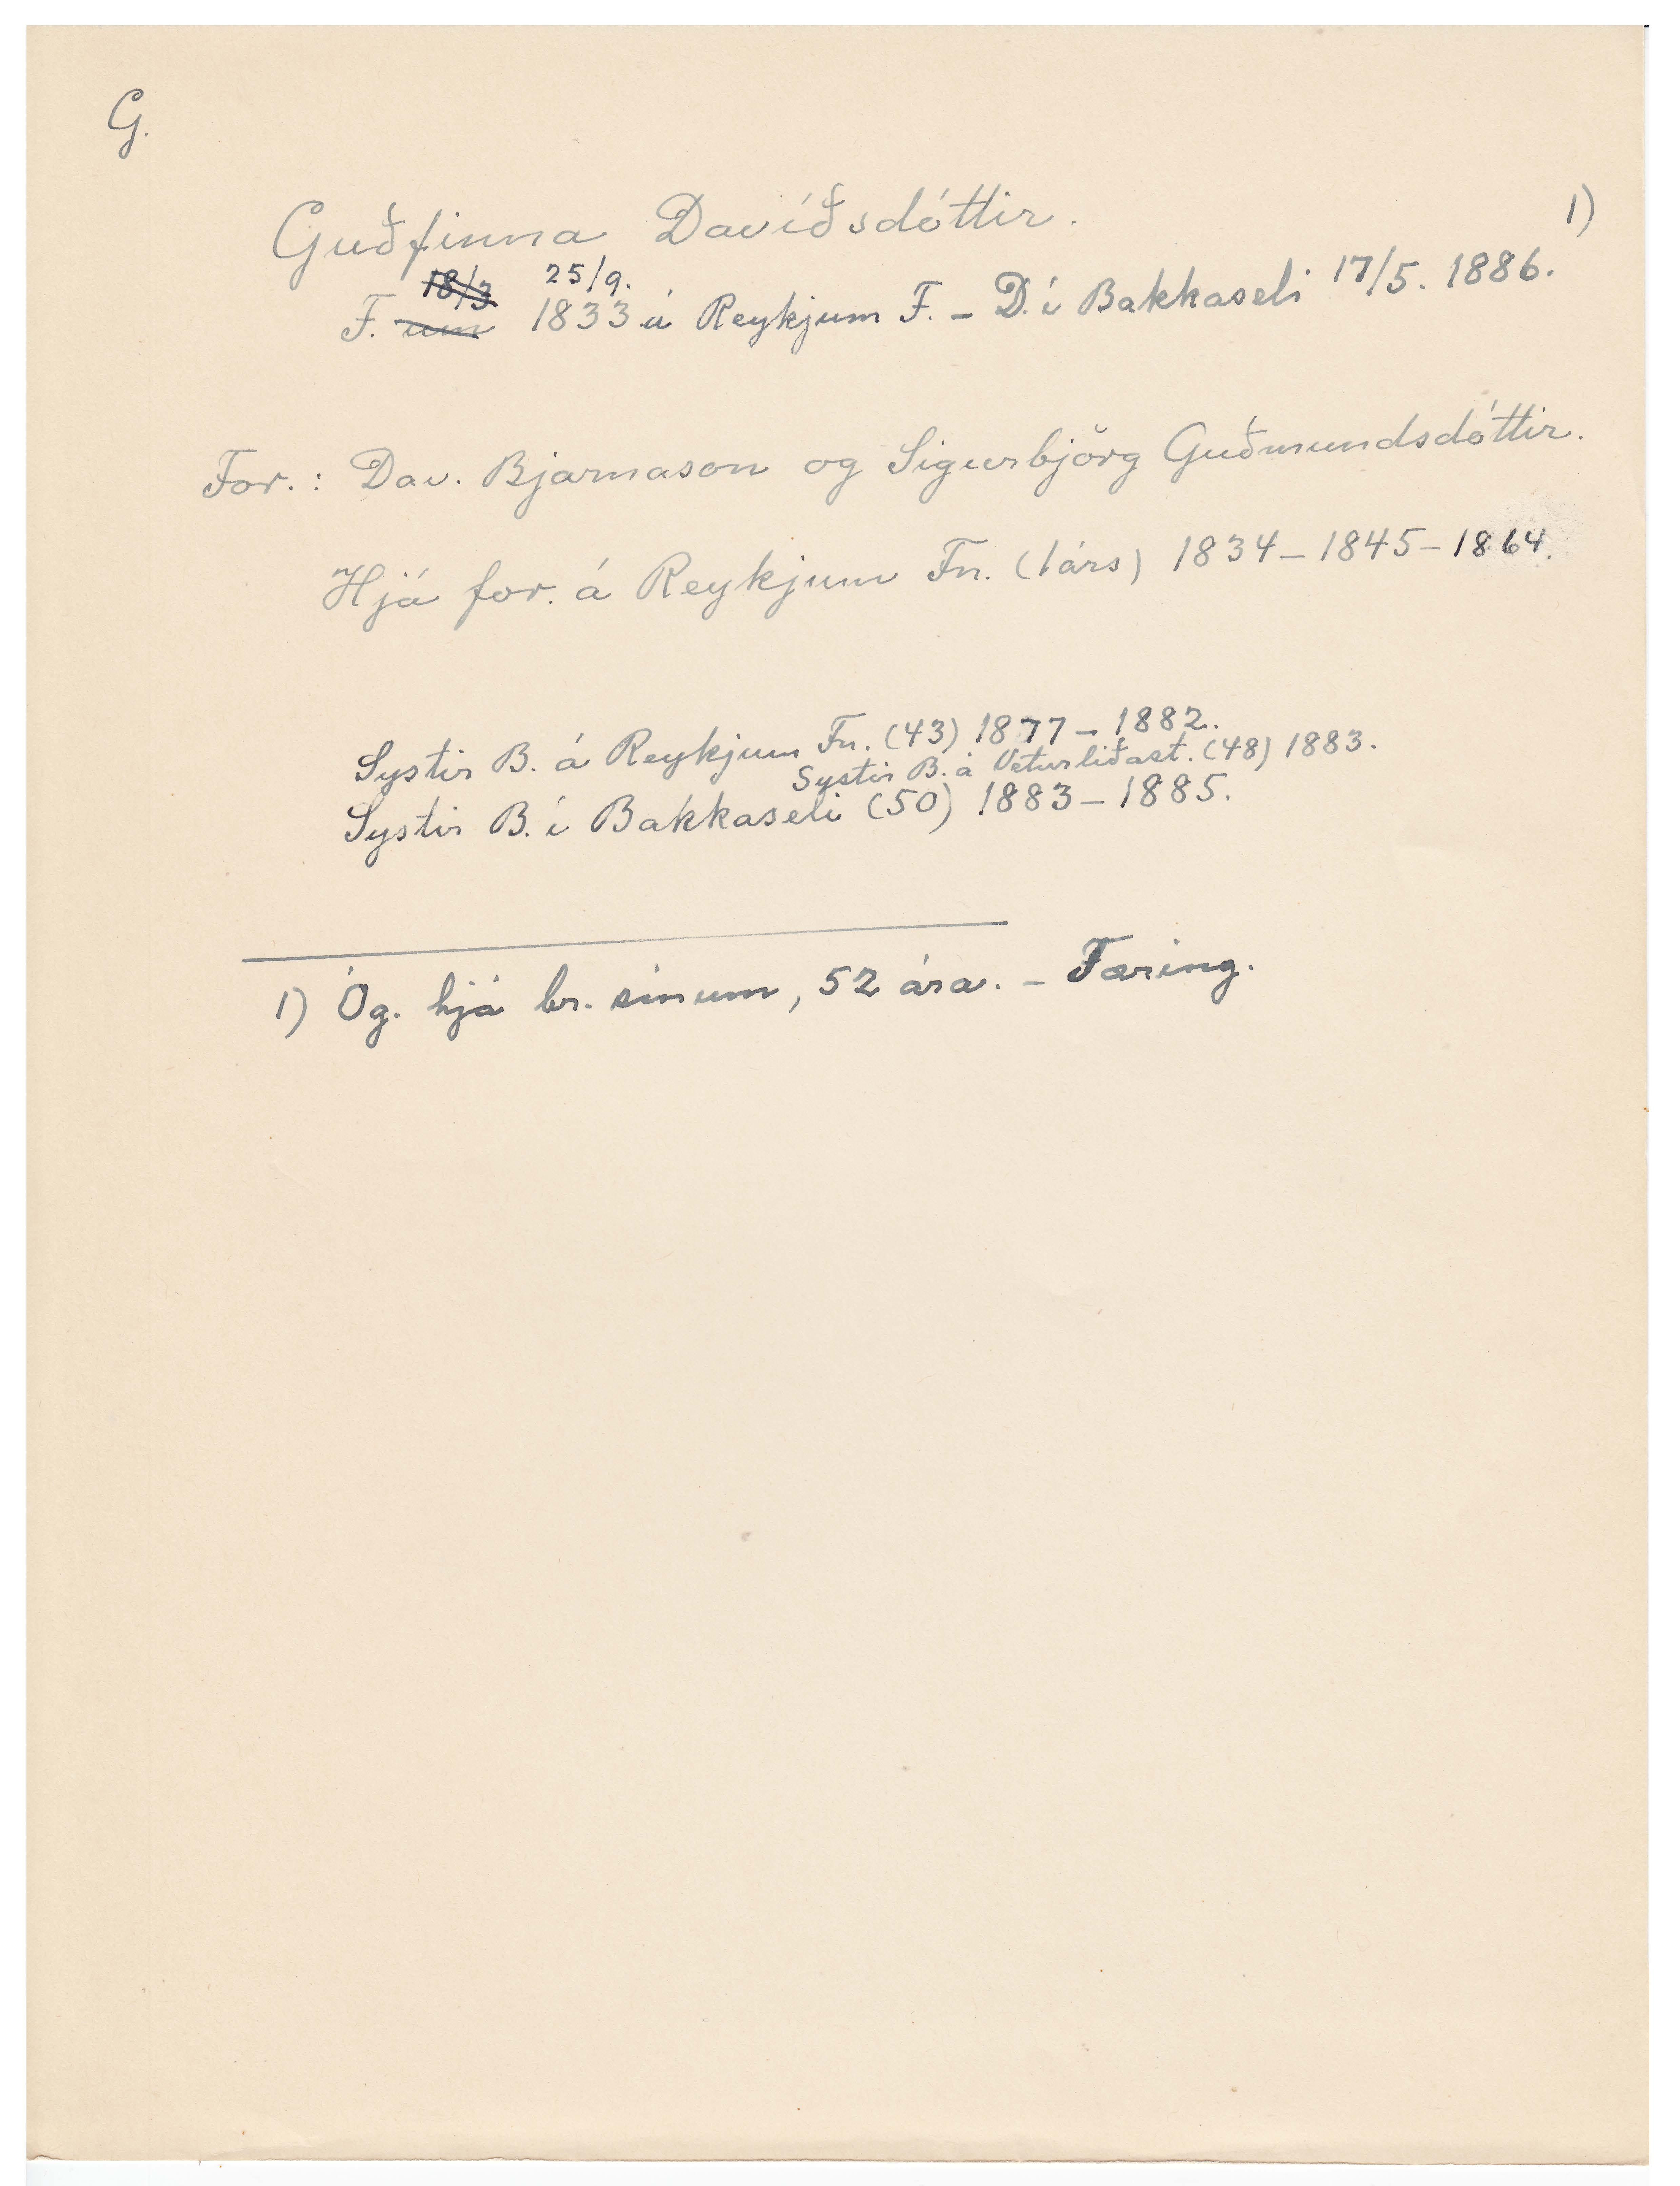 G.
Guðfinna Davíðsdóttir.
1)
18/3 25/9.
F. um 1833 á Reykjum F. - D. í Bakkaseli 17/5. 1886.
For.: Dav. Bjarnason og Sigurbjörg Guðmundsdóttir.
Hjá for. á Reykjum Fn. (1árs) 1834 - 1845 - 1864.
Systir B. á Reykjum Fn. (43) 1877 - 1882.
Systir B. á Veturliðast. (48) 1883.
Systir B. í Bakkaseli (50) 1883 - 1885.
1) Óg. hjá br. sínum, 52 ára. - Tæring.